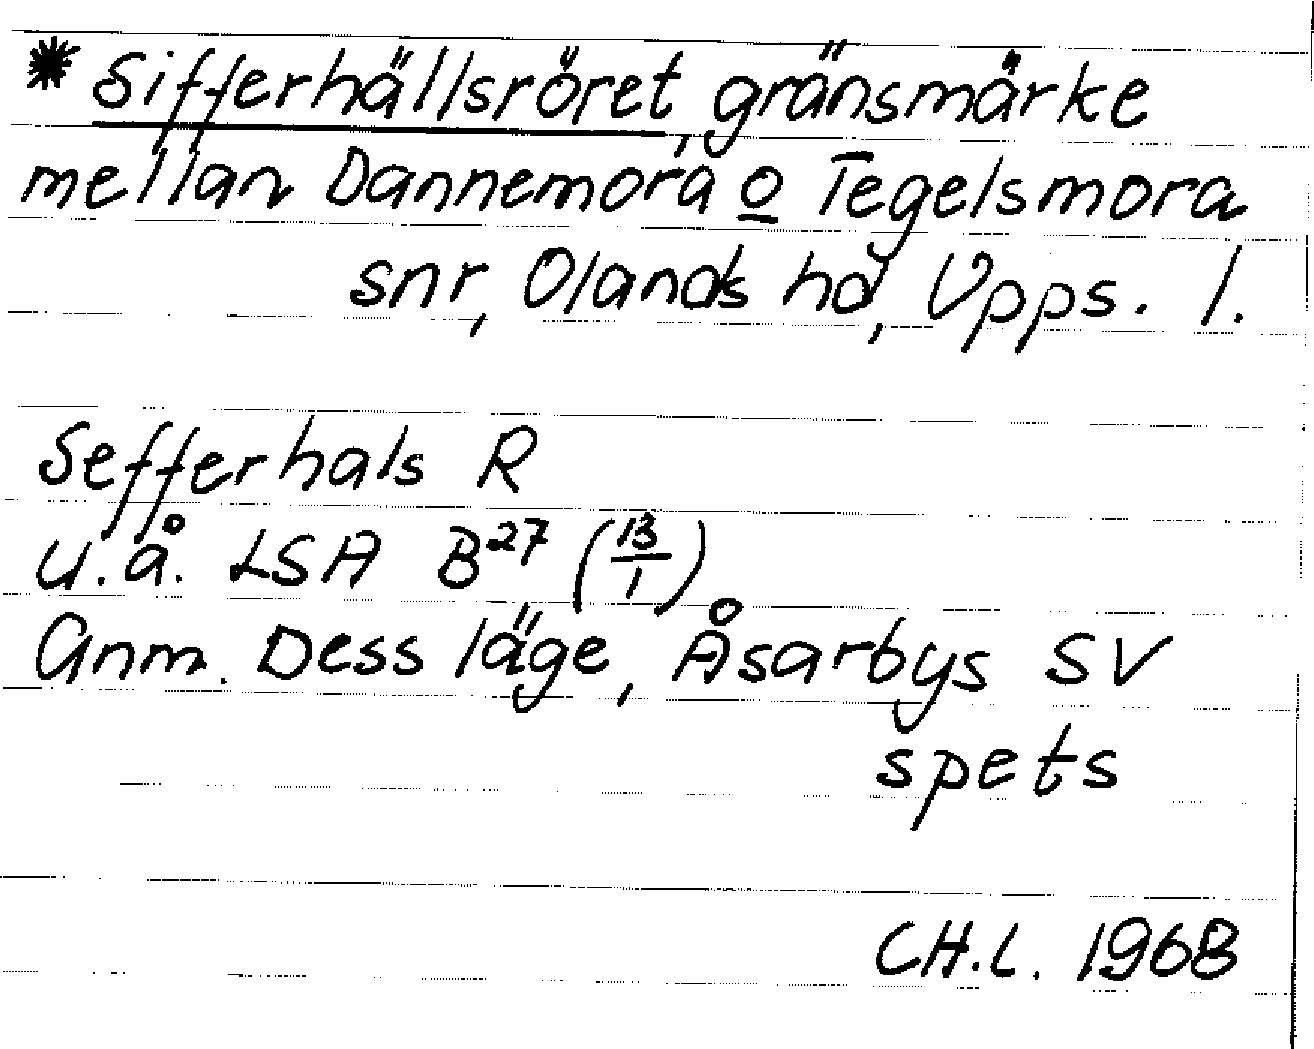 * Sifferhällsröret, gränsmärke
mellan Dannemora o Tegelsmora
snr, Olands hd, Upps. l.
Sefferhals R
u.å. LSA B²⁷ (13/1)
Anm. Dess läge, Åsarbys SV
spets
CH.L. 1968